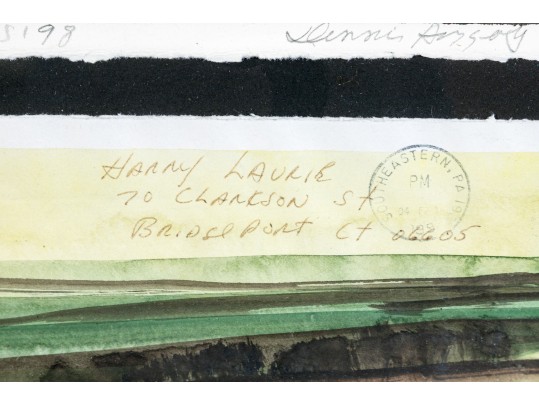 5198
Dennis
HARRY LAURIE
70 CLARKSON ST
BRIDGEPORT CT 06605
SOUTHEASTERN, PA
PM